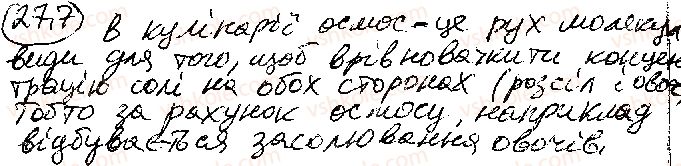 27,7 В кулінарії осмос - це рух молекул
води для того, щоб врівноважити концен
трацію солі на обох сторонах (розсіл і овоч,
тобто за рахунок осмосу, наприклад
відбувається засолювання овочів.